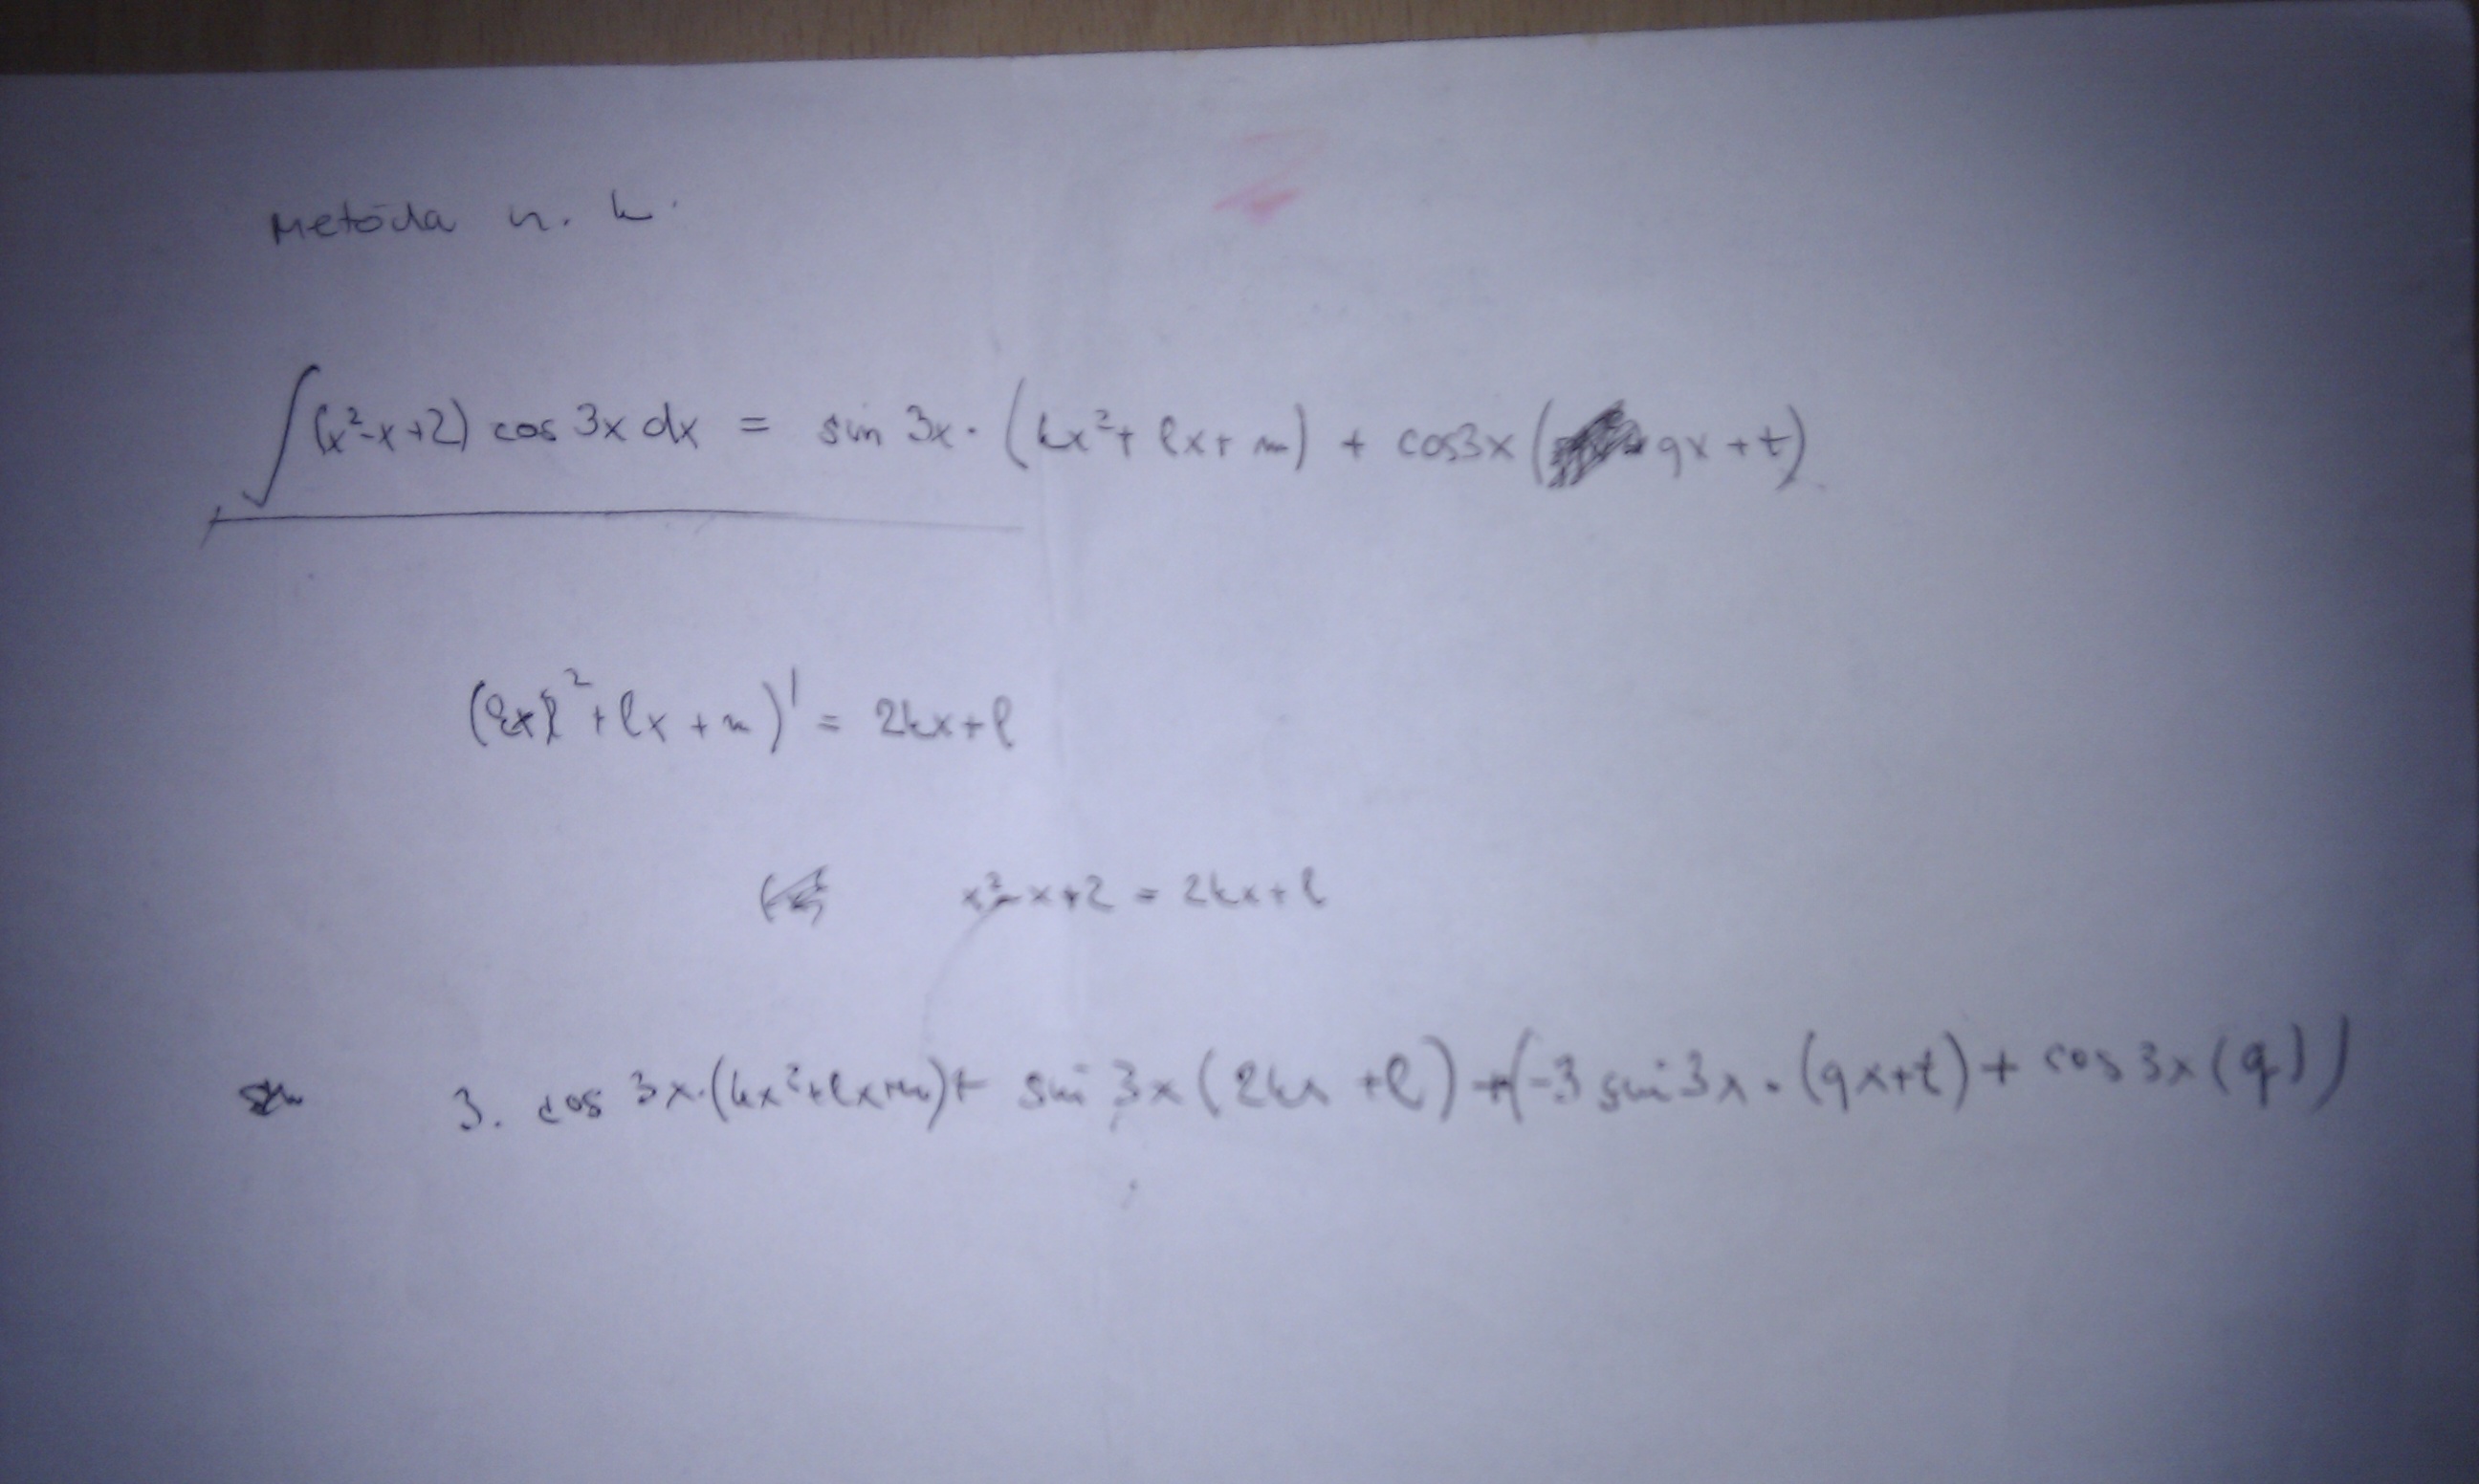 Metóda n. k.
∫(x²-x+2) cos 3x dx = sin 3x · (kx²+ lx+ m) + cos3x ( qx + t)
(kx² + lx + m)' = 2kx+l
x²-x+2 = 2kx+l
3. cos 3x·(kx²+lx+m)+ sin 3x (2kx +l) +(-3 sin 3x · (qx+t) + cos 3x (q))